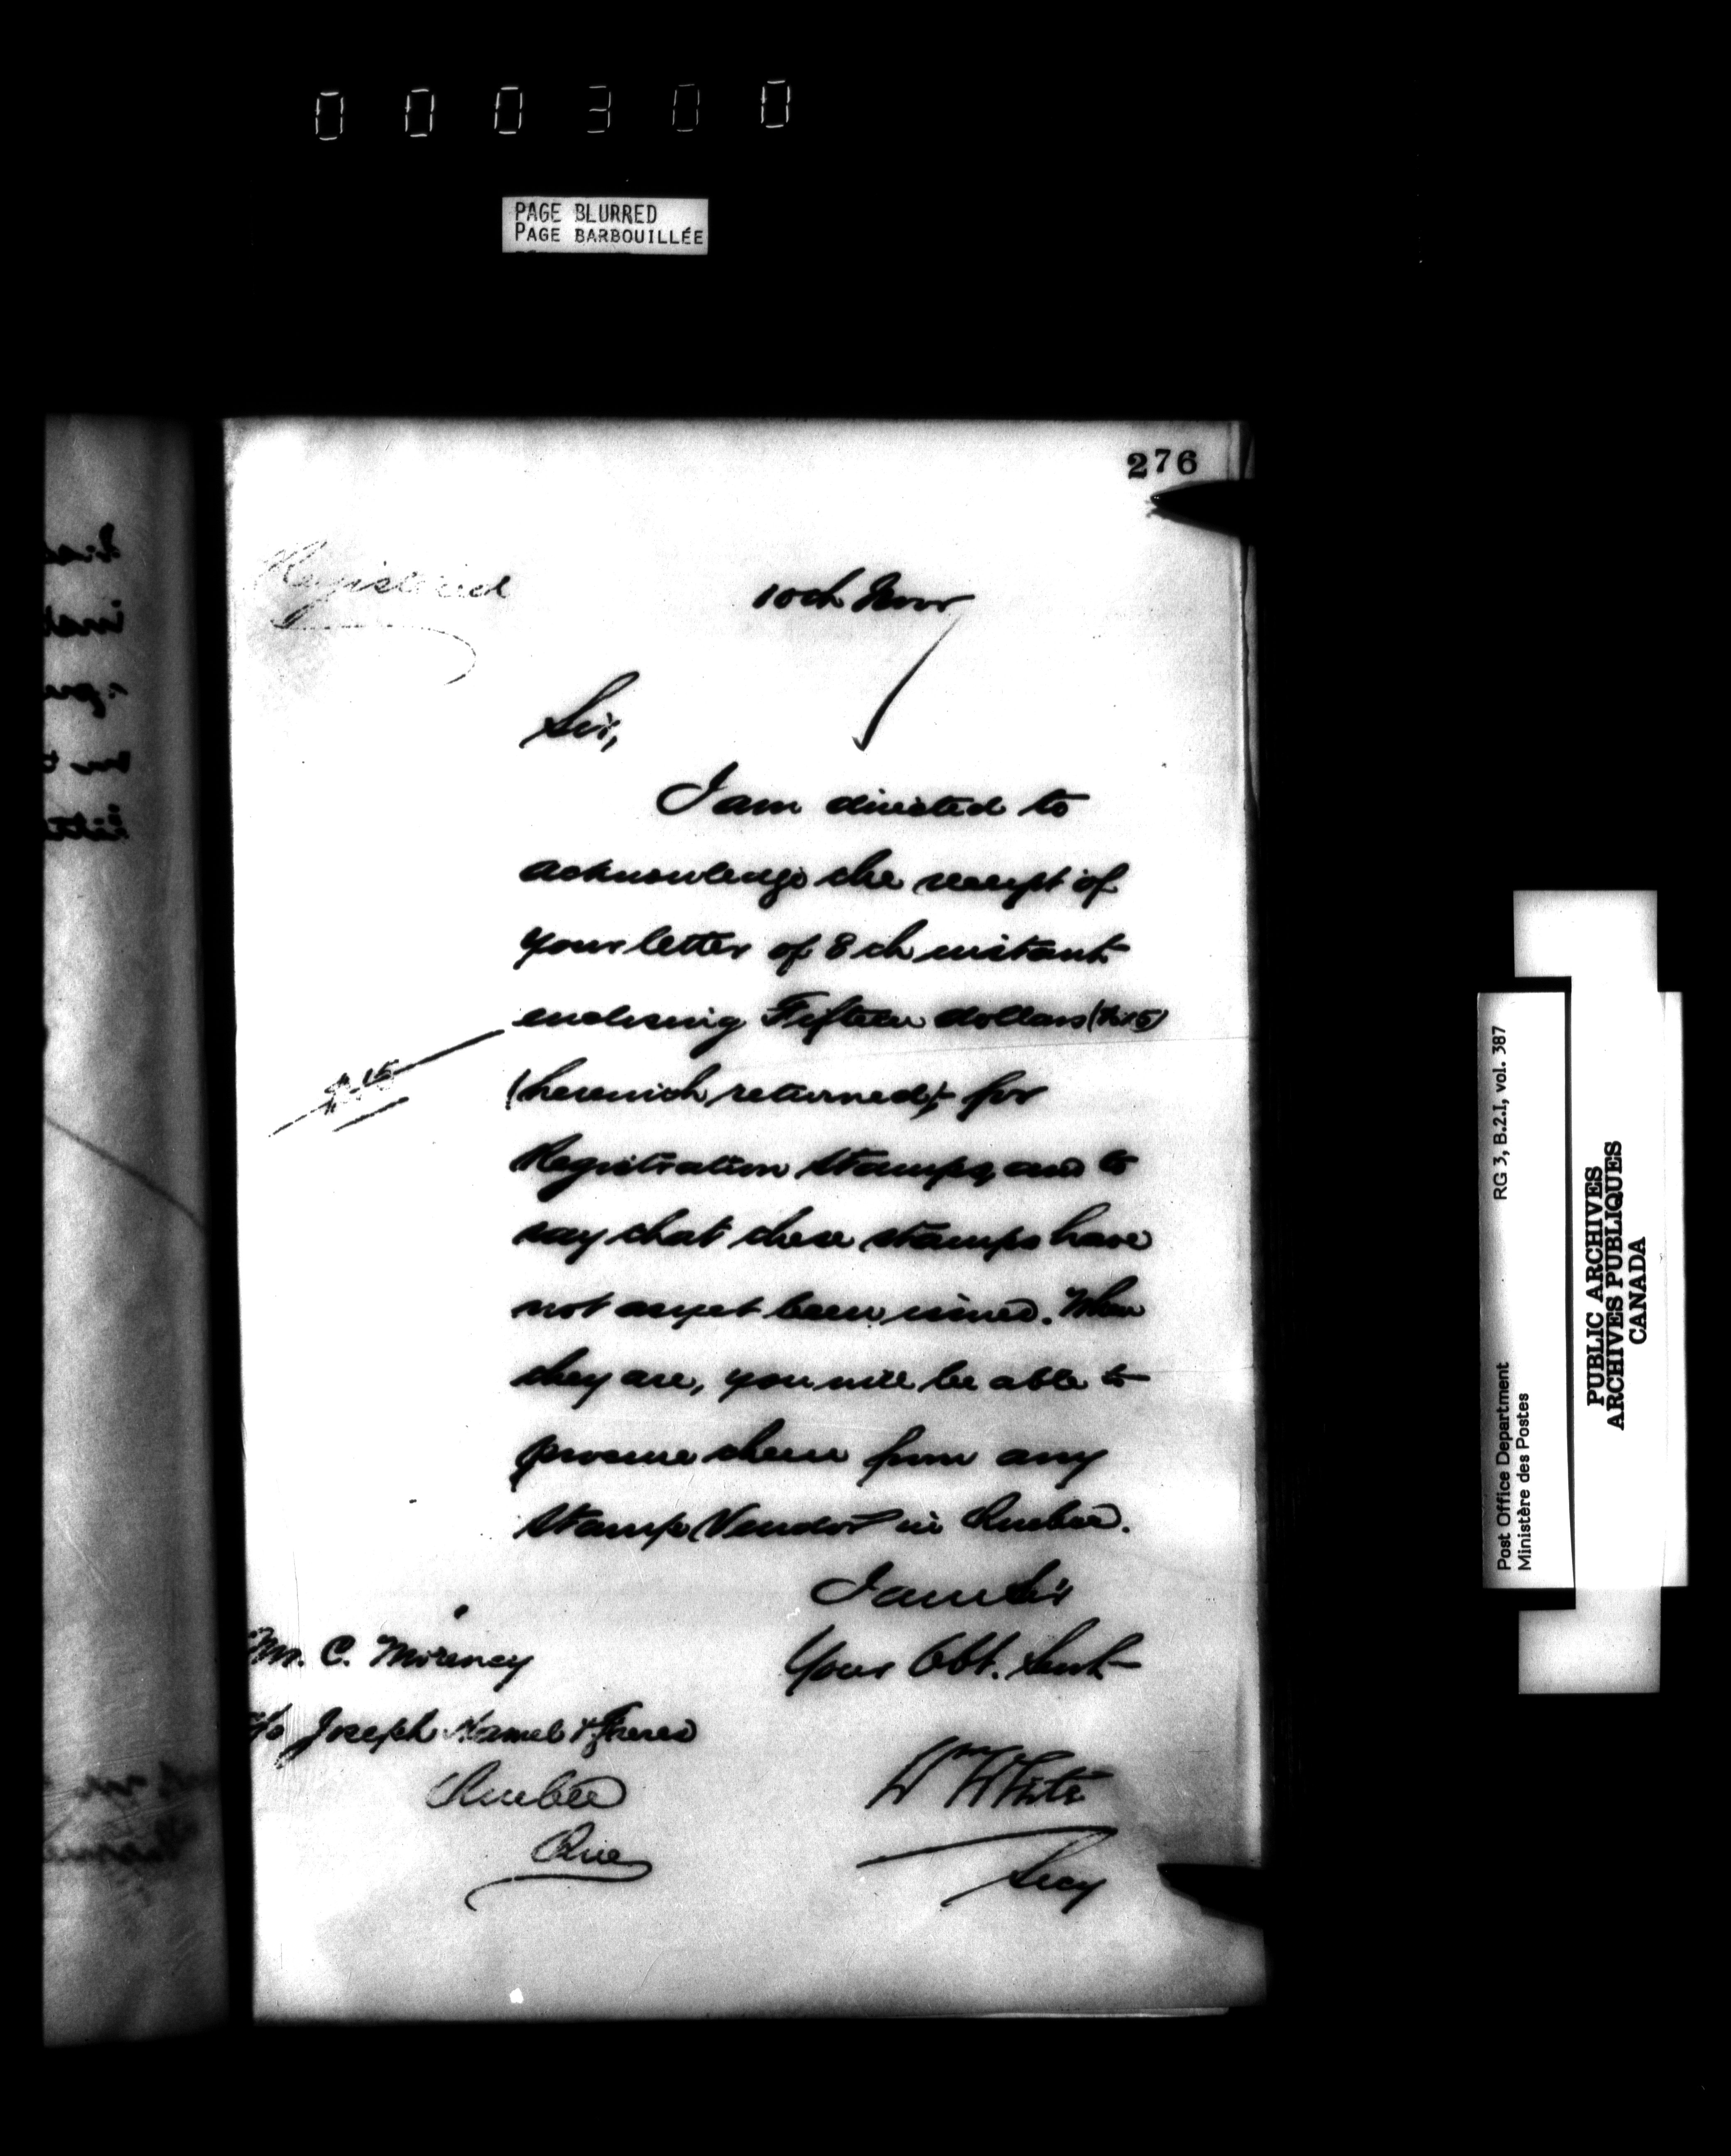 000300
PAGE BLURRED
PAGE BARBOUILLÉE
276
Registered
10th Novr
Sir,
I am directed to
acknowledge the receipt of
your letter of 8th instant
enclosing Fifteen dollars ($15)
$15
(herewith returned) for
Registration stamps, and to
say that these stamps have
not as yet been issued. When
they are, you will be able to
procure them from any
Stamp Vendor in Quebec.
I am Sir
Your Obt. Servt
Mr. C.
c/o Joseph Hamel & Freres
Quebec
Que
Wm White
Secy
Post Offfice Department
Ministère des Postes
RG 3, B.2.I, vol. 387
PUBLIC ARCHIVES
ARCHIVES PUBLIQUES
CANADA